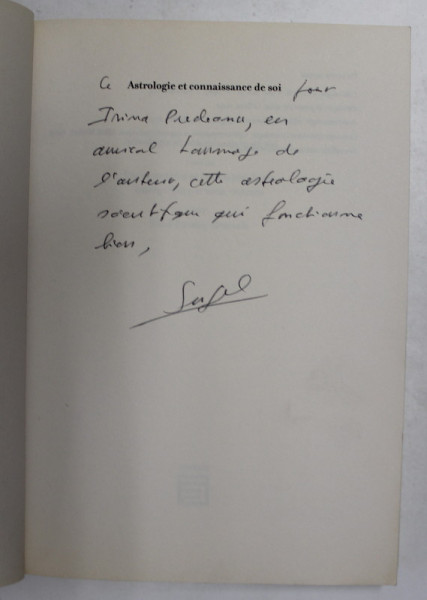 Ce Astrologie et connaissance de soi pour
Irina Predeanu, en
amical hommage de
l'auteur, cette astrologie
scientifique qui fonctionne
bien,